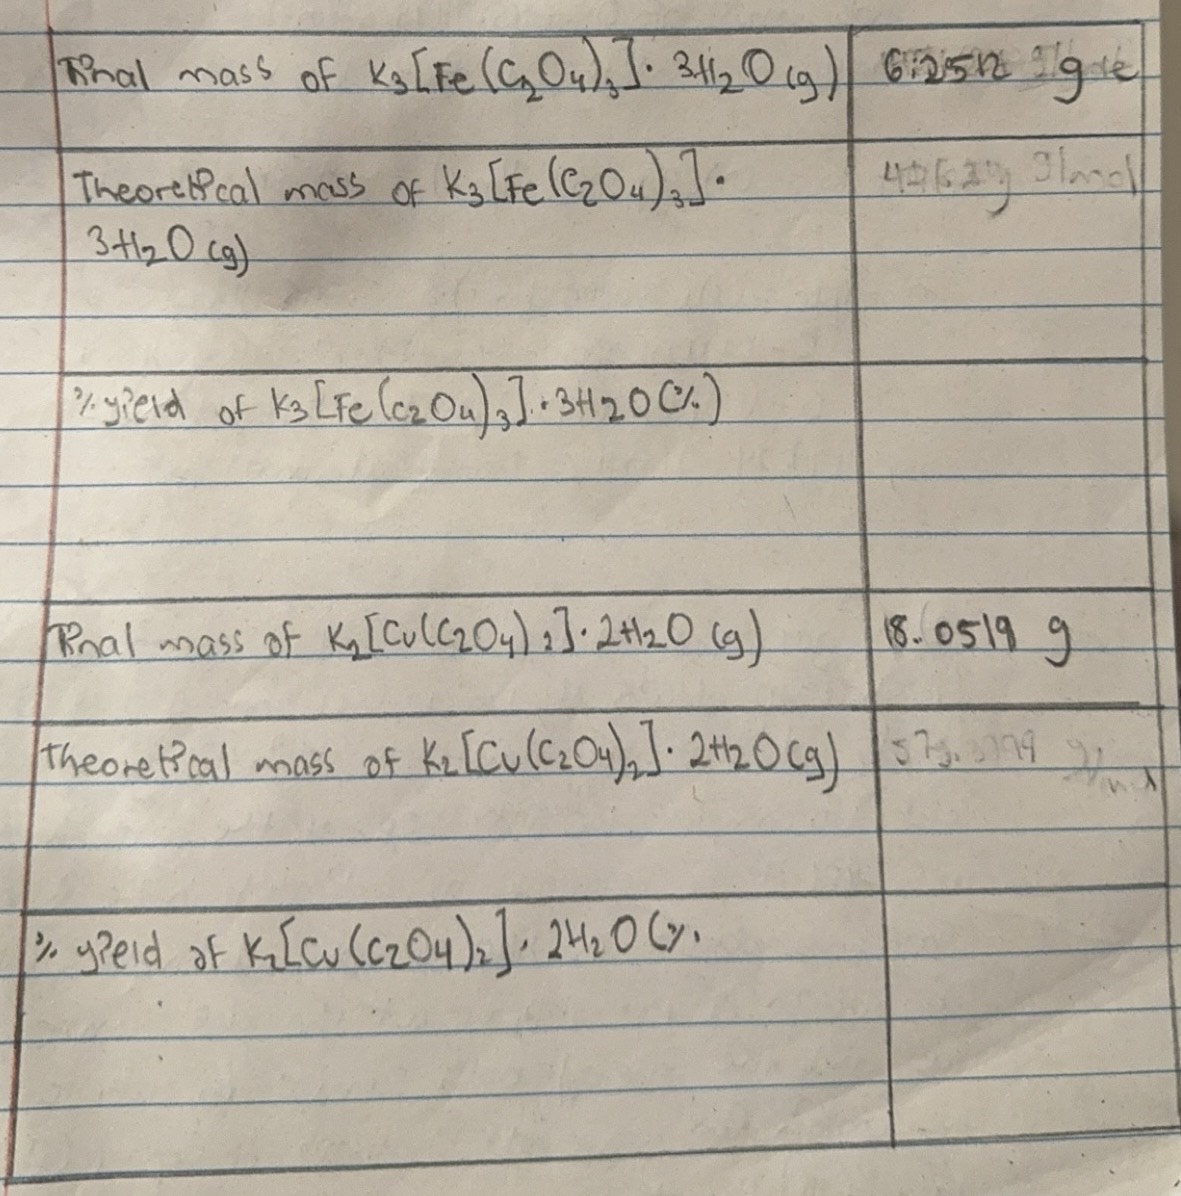 Final mass of K3[Fe(C2O4)3]. 3H2O (g) 6.2512 g
Theoretical mass of K3[Fe(C2O4)3]. g/mol
3H2O (g)
% yield of K3[Fe(C2O4)3].3H2O (%)
Final mass of K2[Cu(C2O4)2].2H2O (g) 18.0519 g
Theoretical mass of K2[Cu(C2O4)2]. 2H2O (g)
% yield of K2[Cu(C2O4)2]. 2H2O (%.